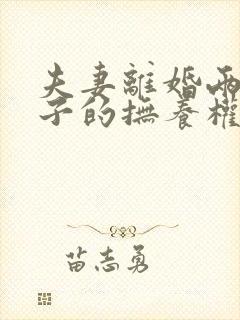 夫妻離婚兩
子的撫養權
苗志勇